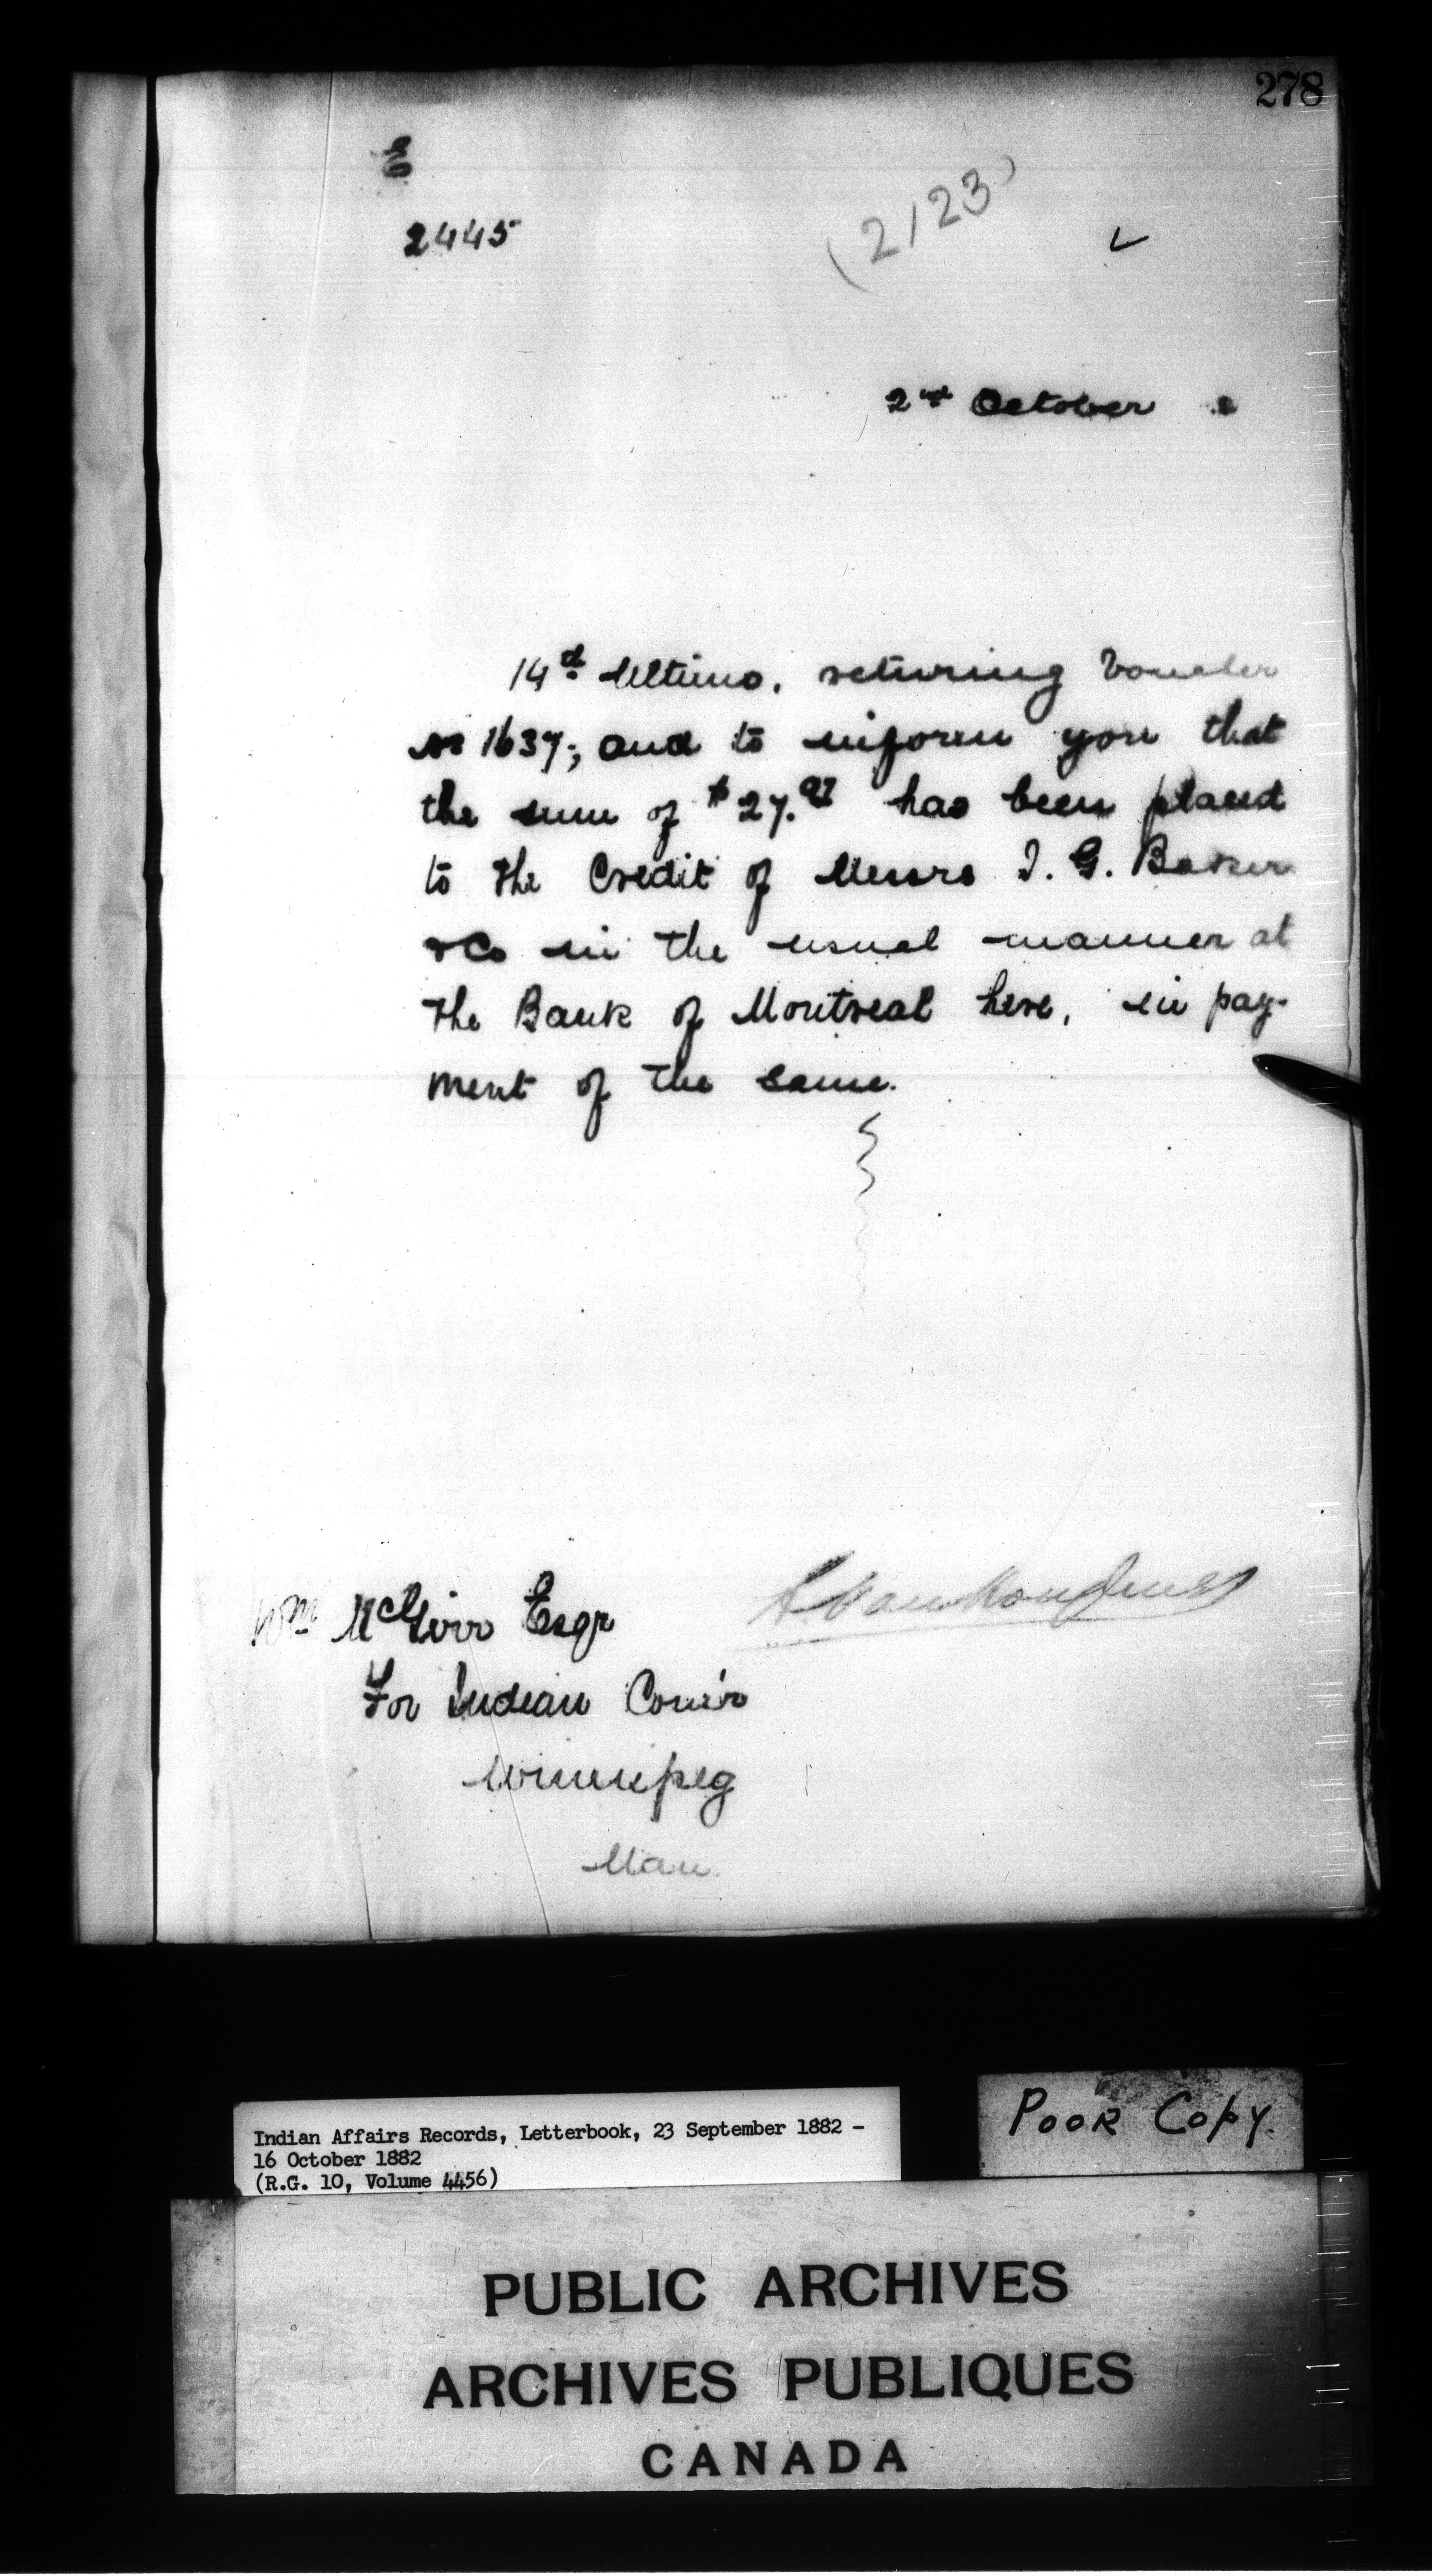 278
E
2445
(2123)
2nd October 2
14th Ultimo, returning Voucher
No 1637; and to inform you that
the sum of $27. has been placed
to the Credit of Messrs I. G. Baker
&Co in the usual manner at
the Bank of Montreal here, in pay-
ment of the same.
L VanKoughnet
Wm McGirr Esqr
For Indian Com'r
Winnipeg
Man.
Poor Copy.
Indian Affairs Records, Letterbook, 23 September 1882 -
16 October 1882
(R.G. 10, Volume 4456)
PUBLIC ARCHIVES
ARCHIVES PUBLIQUES
CANADA